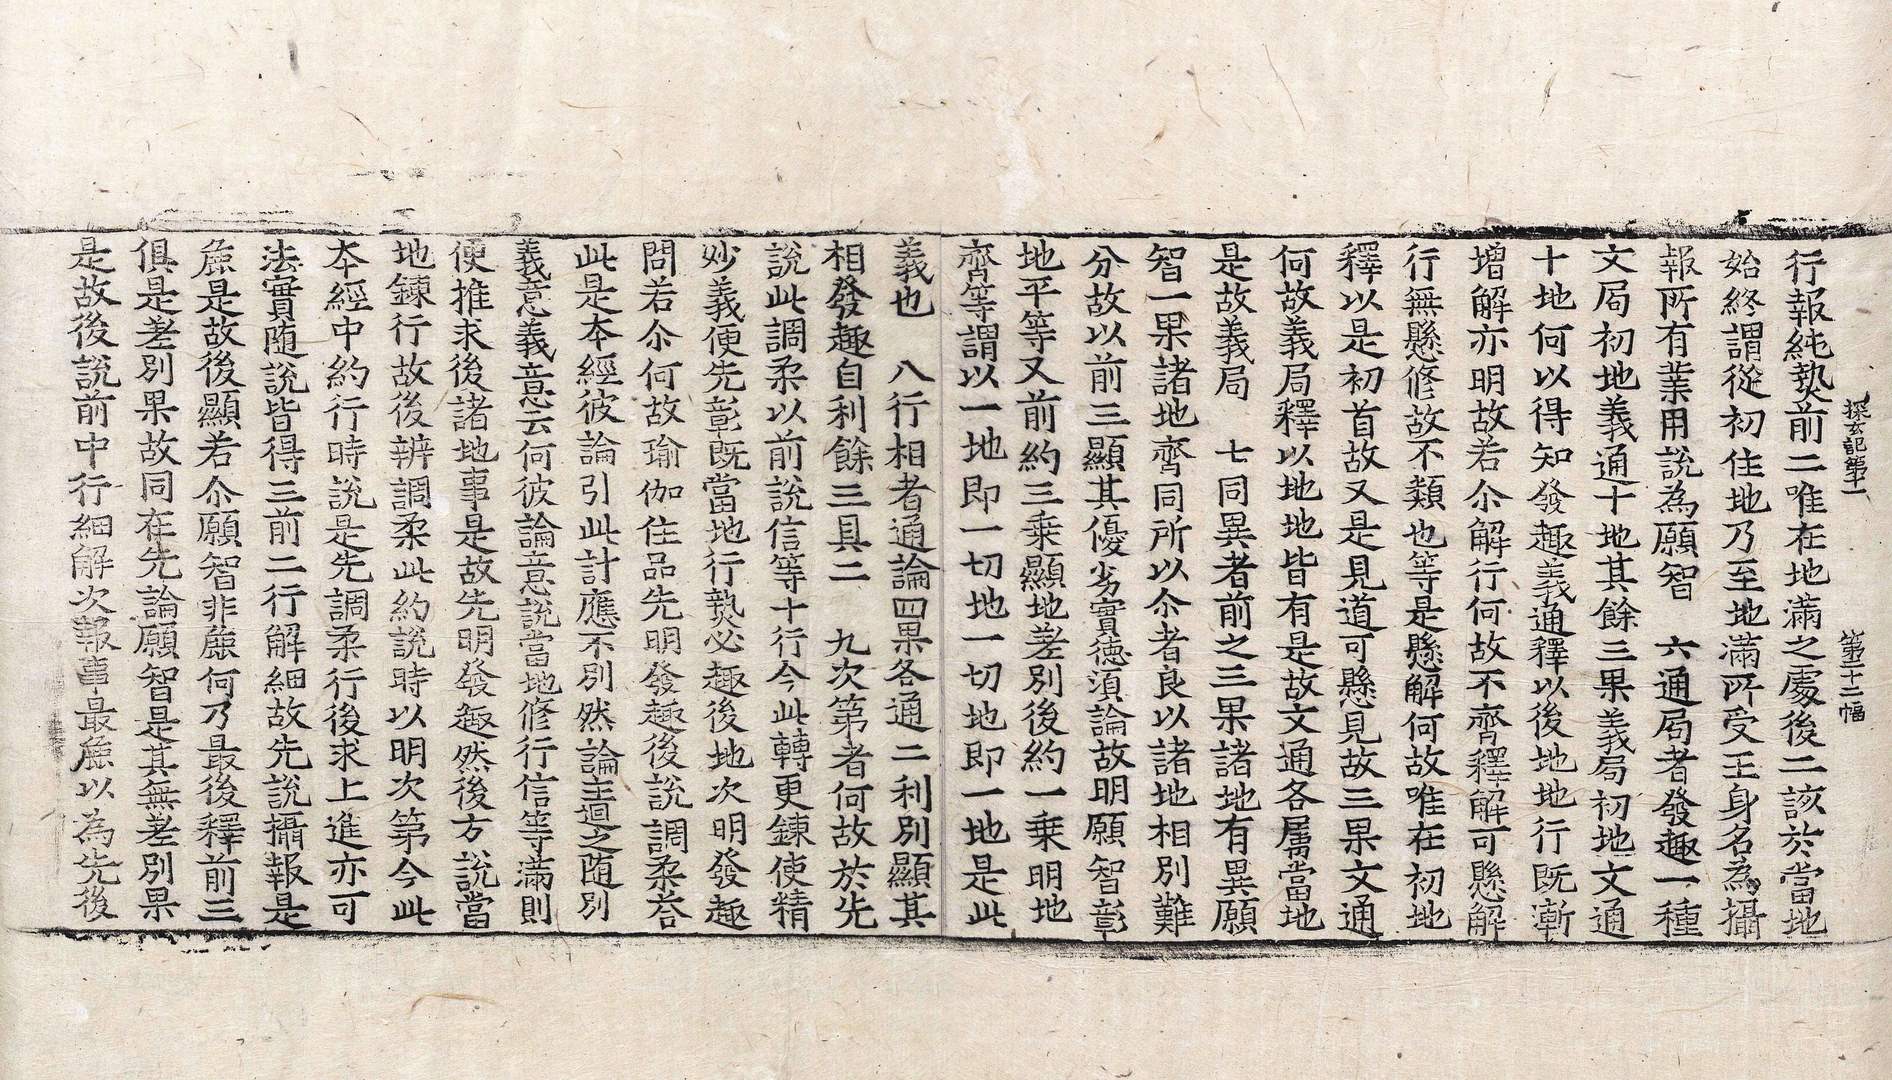 探玄記第一　第三十二幅
行報純熟前二唯在地滿之處後二該於當地
始終謂從初住地乃至地滿所受王身名為攝
報所有業用說為願智　六通局者發趣一種
文局初地義通十地其餘三果義局初地文通
十地何以得知發趣義通釋以後地地行既漸
増解亦明故若尒解行何故不齊釋解可懸解
行無懸修故不類也等是懸解何故唯在初地
釋以是初首故又是見道可懸見故三果文通
何故義局釋以地地皆有是故文通各屬當地
是故義局　七同異者前之三果諸地有異願
智一果諸地齊同所以尒者良以諸地相別難
分故以前三顯其優劣實德須論故明願智彰
地平等又前約三乘顯地差別後約一乘明地
齊等謂以一地即一切地一切地即一地是此
義也　八行相者通論四果各通二利別顯其
相發趣自利餘三具二　九次第者何故於先
說此調柔以前說信等十行今此轉更鍊使精
妙義便先彰既當地行熟必趣後地次明發趣
問若尒何故瑜伽住品先明發趣後說調柔荅
此是本經彼論引此計應不別然論主迴之随別
義意義意云何彼論意說當地修行信等滿則
便推求後諸地事是故先明發趣然後方說當
地鍊行故後辨調柔此約說時以明次第今此
本經中約行時說是先調柔行後求上進亦可
法實随說皆得三前二行解細故先說攝報是
麁是故後顯若尒願智非麁何乃最後釋前三
俱是差別果故同在先論願智是其無差別果
是故後說前中行細解次報事最麁以為先後